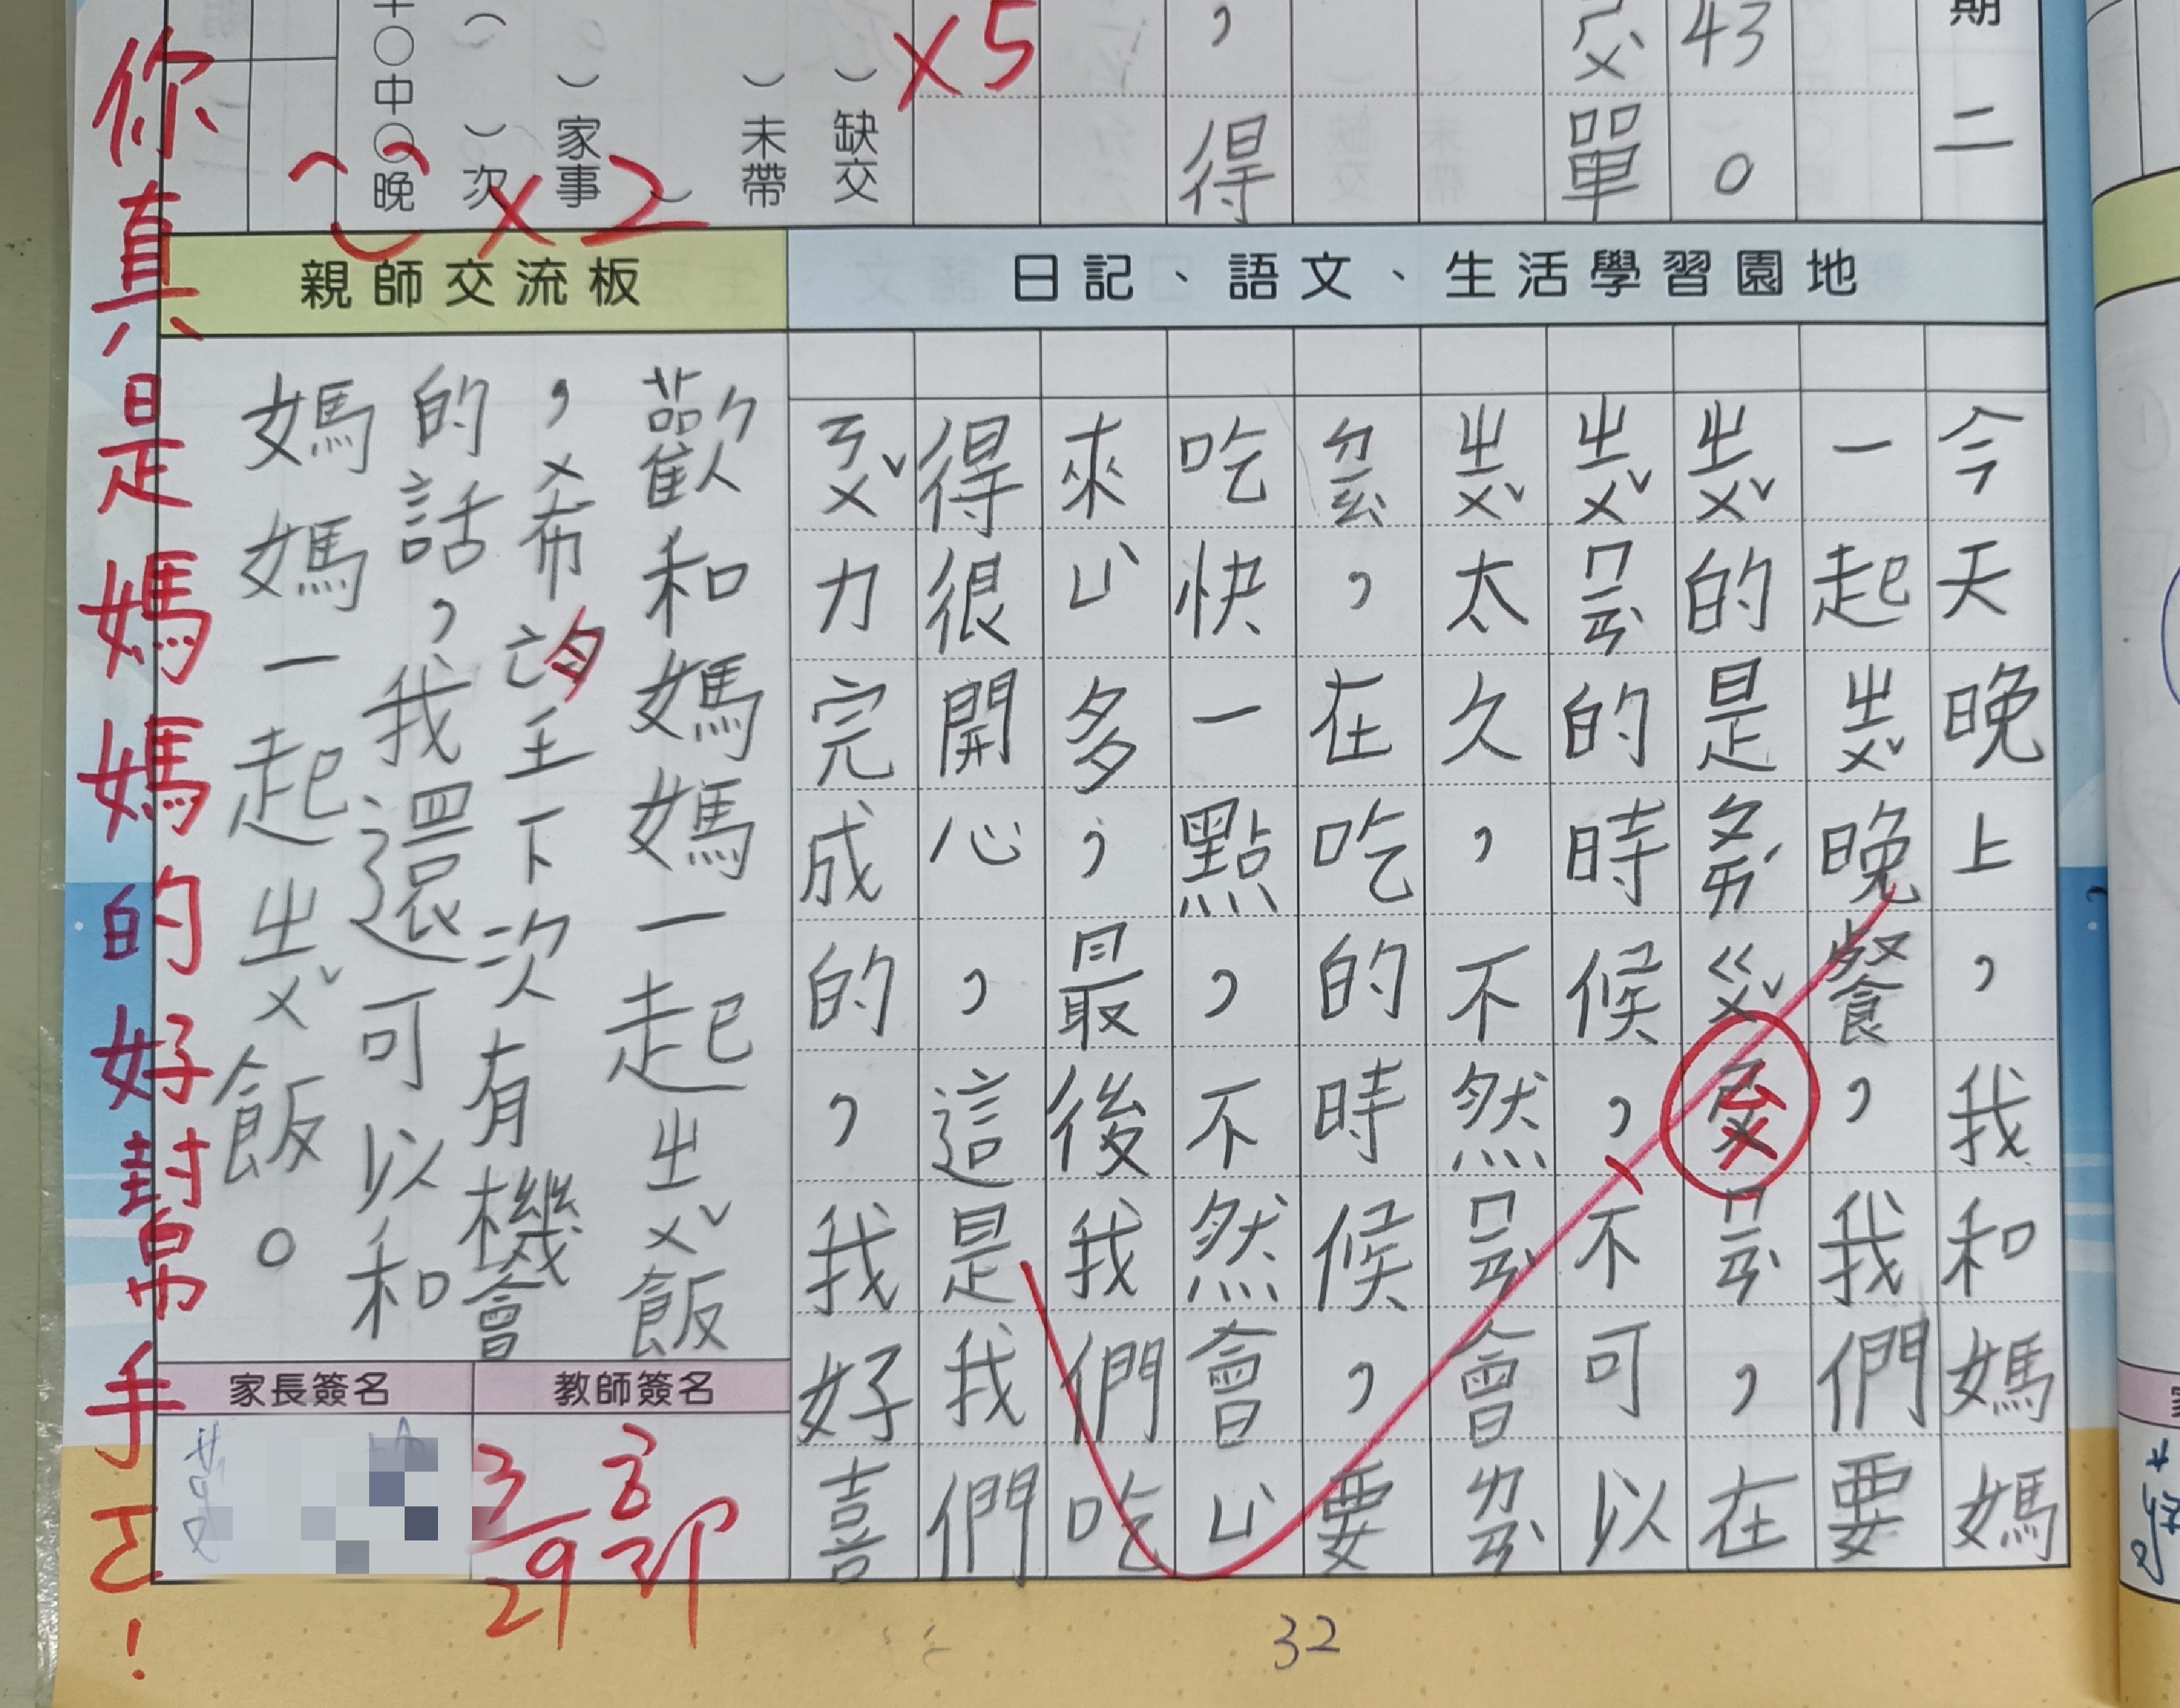 期二
43。
單
，得
×5
）缺交
）未帶
）家事
×2
（　）次
中○晚
日記、語文、生活學習園地
今天晚上，我和媽媽
一起ㄓㄨˇ晚餐，我們要
ㄓㄨˇ的是ㄆㄞˊㄍㄨˇㄇㄧㄢˋ，在
ㄓㄨˇㄇㄧㄢˋ的時候，不可以
ㄓㄨˇ太久，不然ㄇㄧㄢˋ會ㄌㄢˋ
ㄉㄧㄠˋ，在吃的時候，要
吃快一點，不然會ㄩˋ
來ㄩˋ多，最後我們吃
得很開心，這是我們
ㄋㄨˇ力完成的，我好喜
親師交流板
歡和媽媽一起ㄓㄨˇ飯
，希望下次有機會
的話，我還可以和
媽媽一起ㄓㄨˇ飯。
教師簽名
3/29
家長簽名
你真是媽媽的好幫手ㄛ！
32